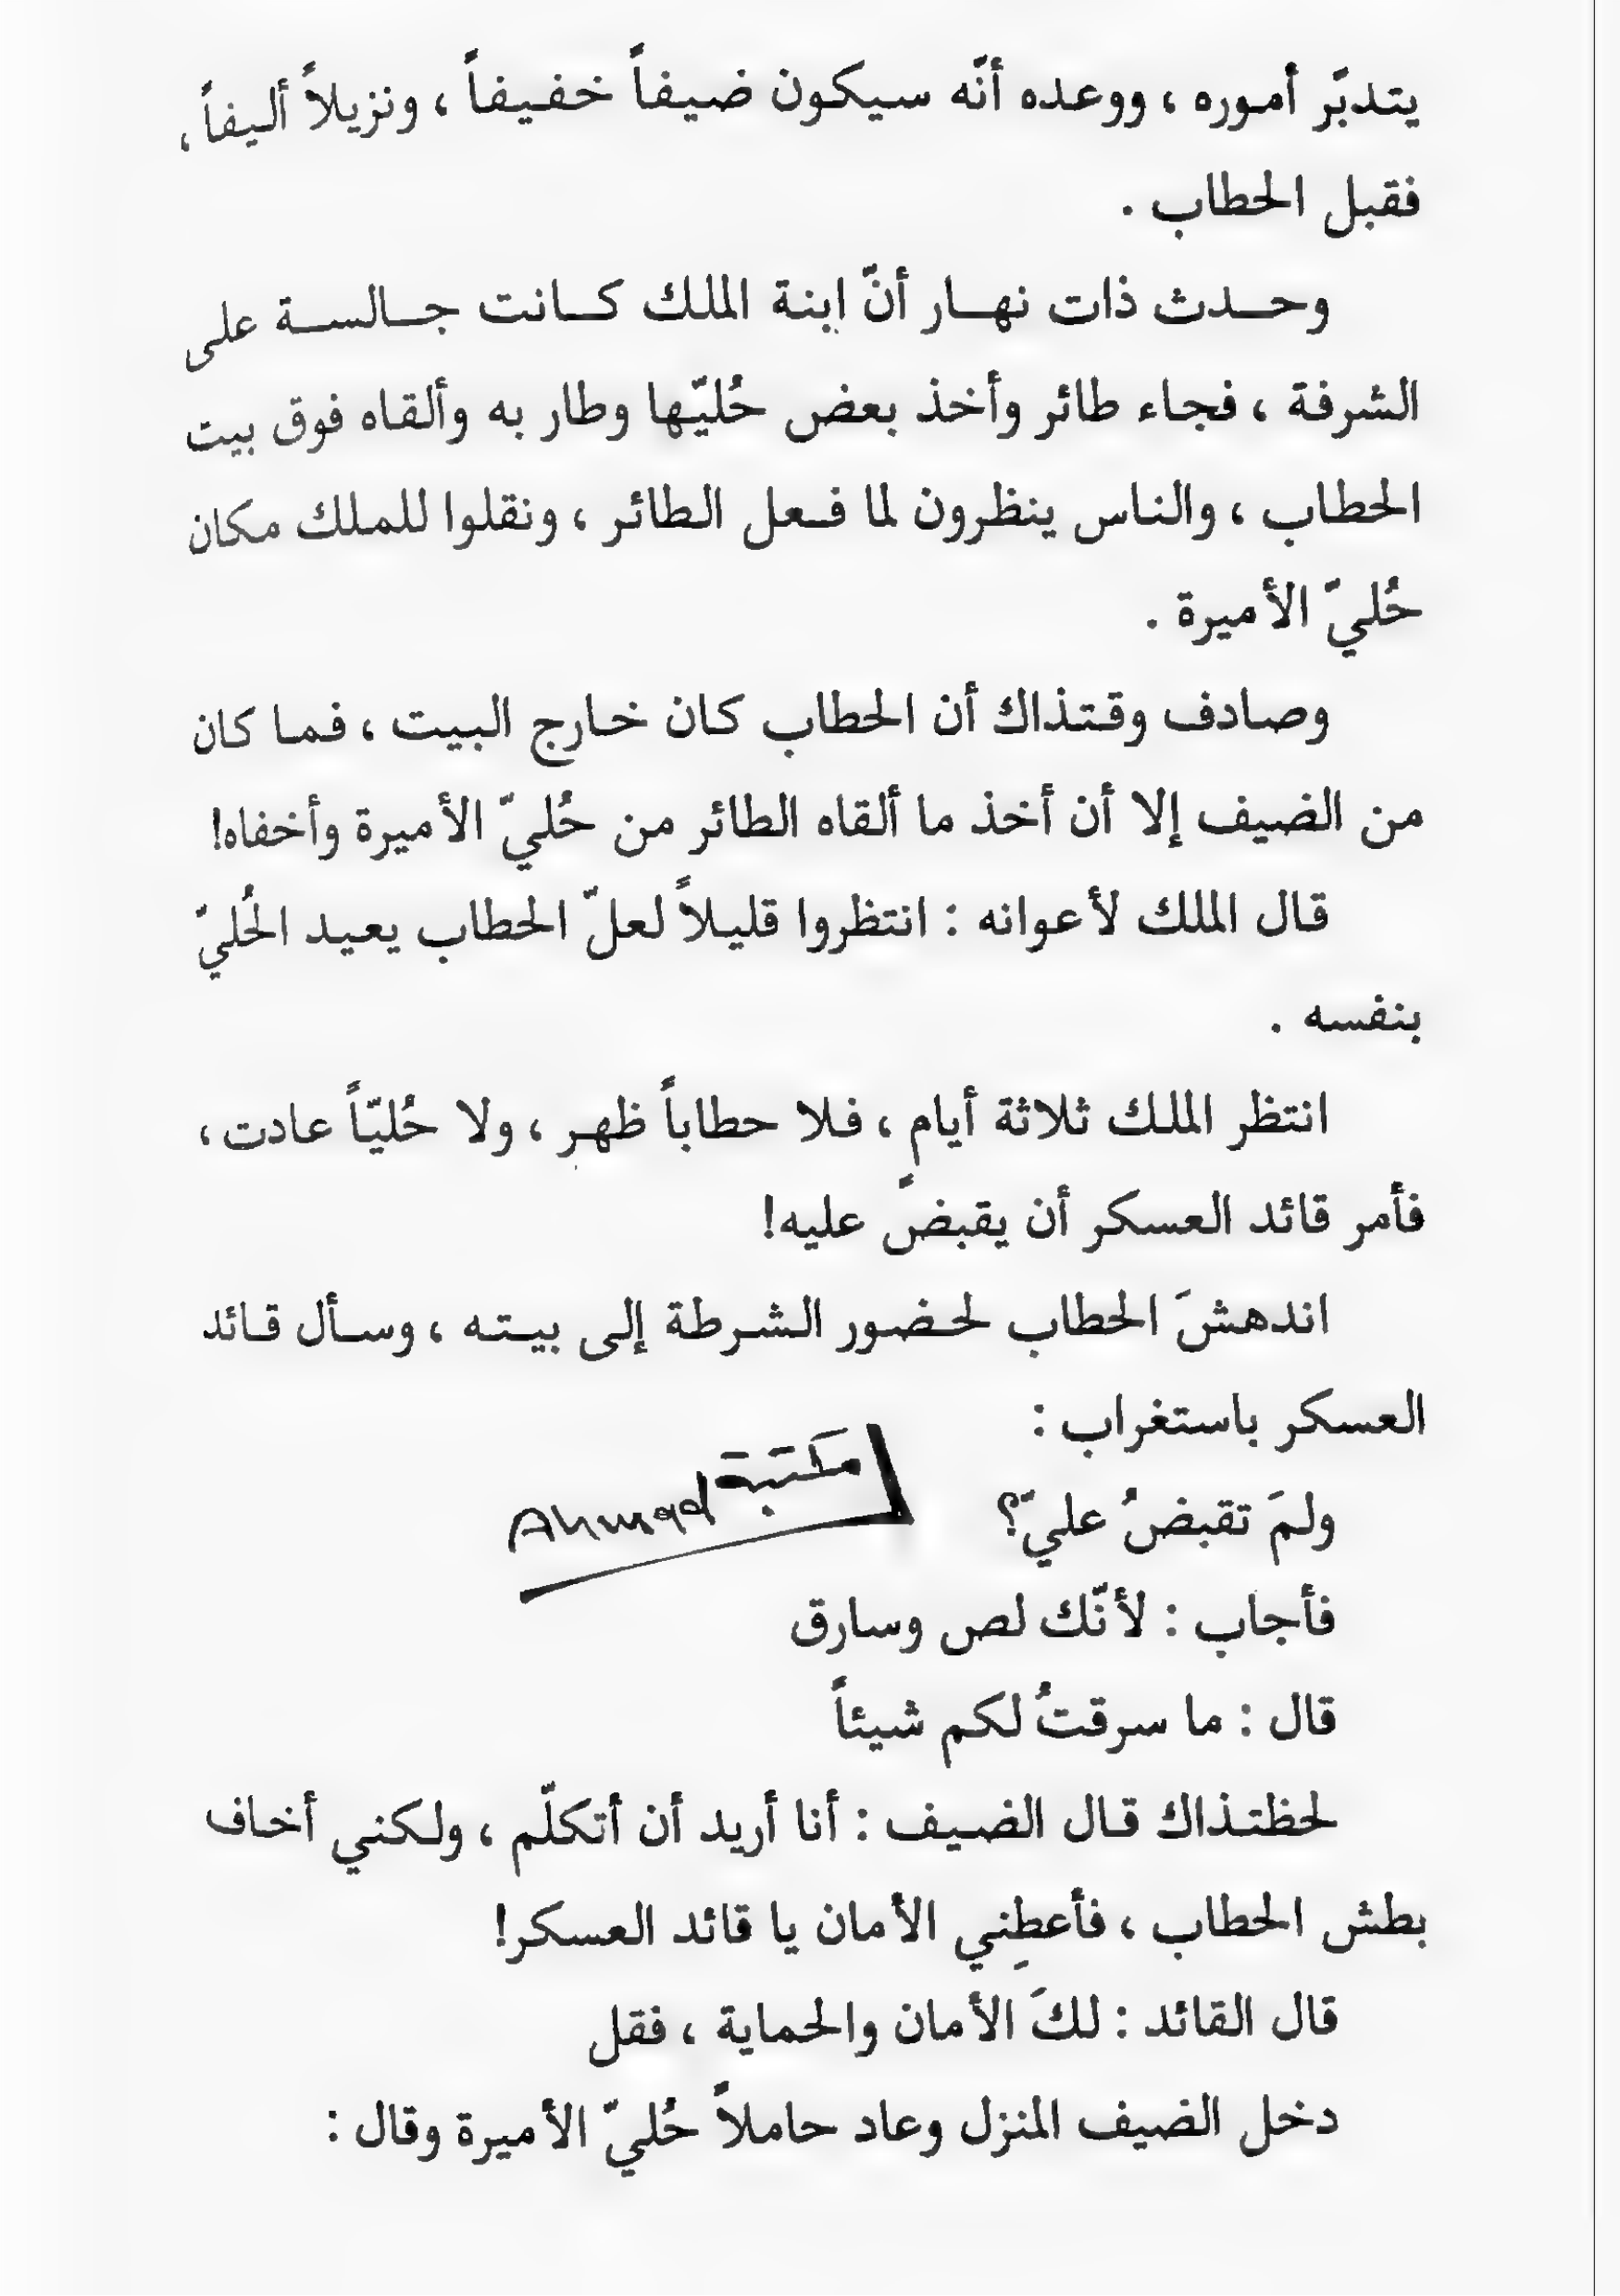 يتدبَّر أموره ، ووعده أنَّه سيكون ضيفاً خفيفاً ، ونزيلاً أليفاً ،
فقبل الحطاب .
وحدث ذات نهار أنّ ابنة الملك كانت جالسة على
الشرفة ، فجاء طائر وأخذ بعض حُليّها وطار به وألقاه فوق بيت
الحطاب ، والناس ينظرون لما فعل الطائر ، ونقلوا للملك مكان
حُليّ الأميرة .
وصادف وقتذاك أن الحطاب كان خارج البيت ، فما كان
من الضيف إلا أن أخذ ما ألقاه الطائر من حُليّ الأميرة وأخفاه!
قال الملك لأعوانه : انتظروا قليلاً لعلّ الحطاب يعيد الحُليّ
بنفسه .
انتظر الملك ثلاثة أيامٍ ، فلا حطاباً ظهر ، ولا حُليّاً عادت ،
فأمر قائد العسكر أن يقبضَ عليه!
اندهشَ الحطاب لحضور الشرطة إلى بيته ، وسأل قائد
العسكر باستغراب :
ولمَ تقبضُ عليّ؟
مكتبة Ahmad
فأجاب : لأنّك لص وسارق
قال : ما سرقتُ لكم شيئاً
لحظتذاك قال الضيف : أنا أريد أن أتكلّم ، ولكني أخاف
بطش الحطاب ، فأعطِني الأمان يا قائد العسكر!
قال القائد : لكَ الأمان والحماية ، فقل
دخل الضيف المنزل وعاد حاملاً حُليّ الأميرة وقال :